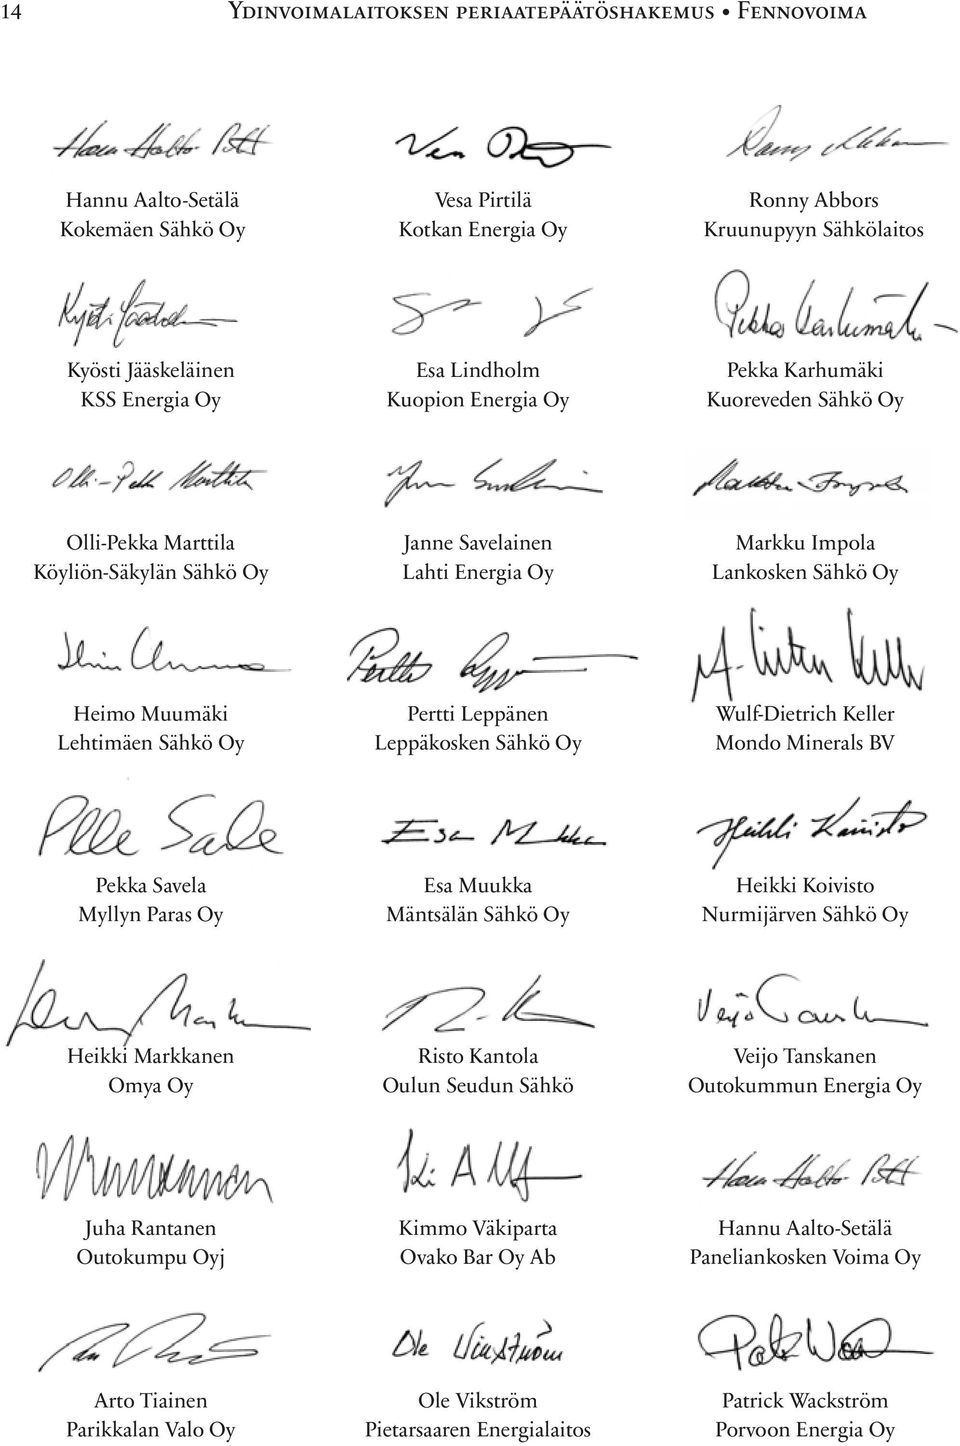 14 Ydinvoimalaitoksen periaatepäätöshakemus • Fennovoima
Hannu Aalto-Setälä Vesa Pirtilä Ronny Abbors
Kokemäen Sähkö Oy Kotkan Energia Oy Kruunupyyn Sähkölaitos
Kyösti Jääskeläinen Esa Lindholm Pekka Karhumäki
KSS Energia Oy Kuopion Energia Oy Kuoreveden Sähkö Oy
Olli-Pekka Marttila Janne Savelainen Markku Impola
Köyliön-Säkylän Sähkö Oy Lahti Energia Oy Lankosken Sähkö Oy
Heimo Muumäki Pertti Leppänen Wulf-Dietrich Keller
Lehtimäen Sähkö Oy Leppäkosken Sähkö Oy Mondo Minerals BV
Pekka Savela Esa Muukka Heikki Koivisto
Myllyn Paras Oy Mäntsälän Sähkö Oy Nurmijärven Sähkö Oy
Heikki Markkanen Risto Kantola Veijo Tanskanen
Omya Oy Oulun Seudun Sähkö Outokummun Energia Oy
Juha Rantanen Kimmo Väkiparta Hannu Aalto-Setälä
Outokumpu Oyj Ovako Bar Oy Ab Paneliankosken Voima Oy
Arto Tiainen Ole Vikström Patrick Wackström
Parikkalan Valo Oy Pietarsaaren Energialaitos Porvoon Energia Oy